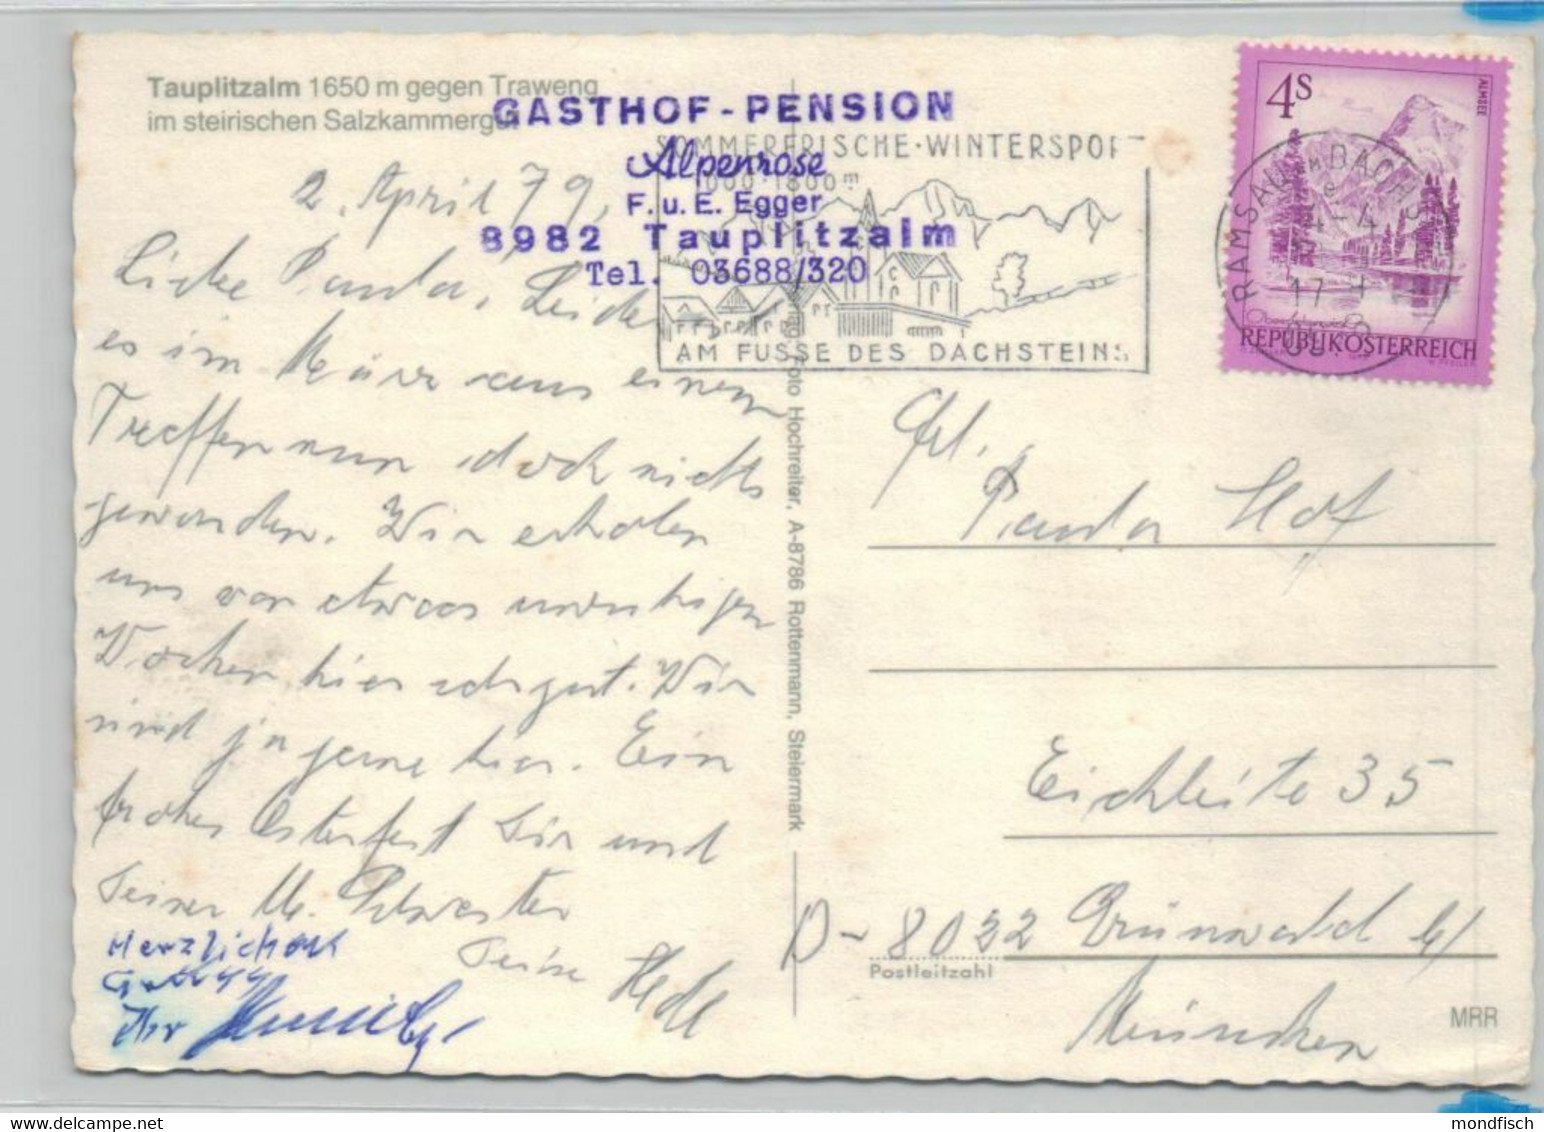 Tauplitzalm 1650 m gegen Traweng
im steirischen Salzkammergut
GASTHOF-PENSION
Alpenrose
F. u. E. Egger
8982 Tauplitzalm
Tel. 03688/320
SOMMERFRISCHE·WINTERSPORT
1000-1800m
AM FUSSE DES DACHSTEINS
4S
ALMSEE
REPUBLIK ÖSTERREICH
RAMSAU am DACHS
2. April 79,
Liebe Paula, Leider
es im März aus einem
Treffen nun doch nichts
geworden. Wir erholen
uns von etwas unruhigen
Wochen hier sehr gut. Wir
sind ja gerne hier. Ein
frohes Osterfest Dir und
Deiner Schwester
Deine
Herzlichen
Ihr
Foto Hochreiter, A-8786 Rottenmann, Steiermark
Frl.
Paula Hof
Eichleite 35
D-8022 Grünwald b/
Postleitzahl
München
MRR
mondfisch